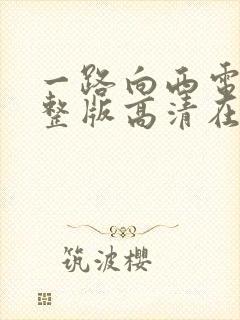 一路向西电
整版高清在
筑波樱